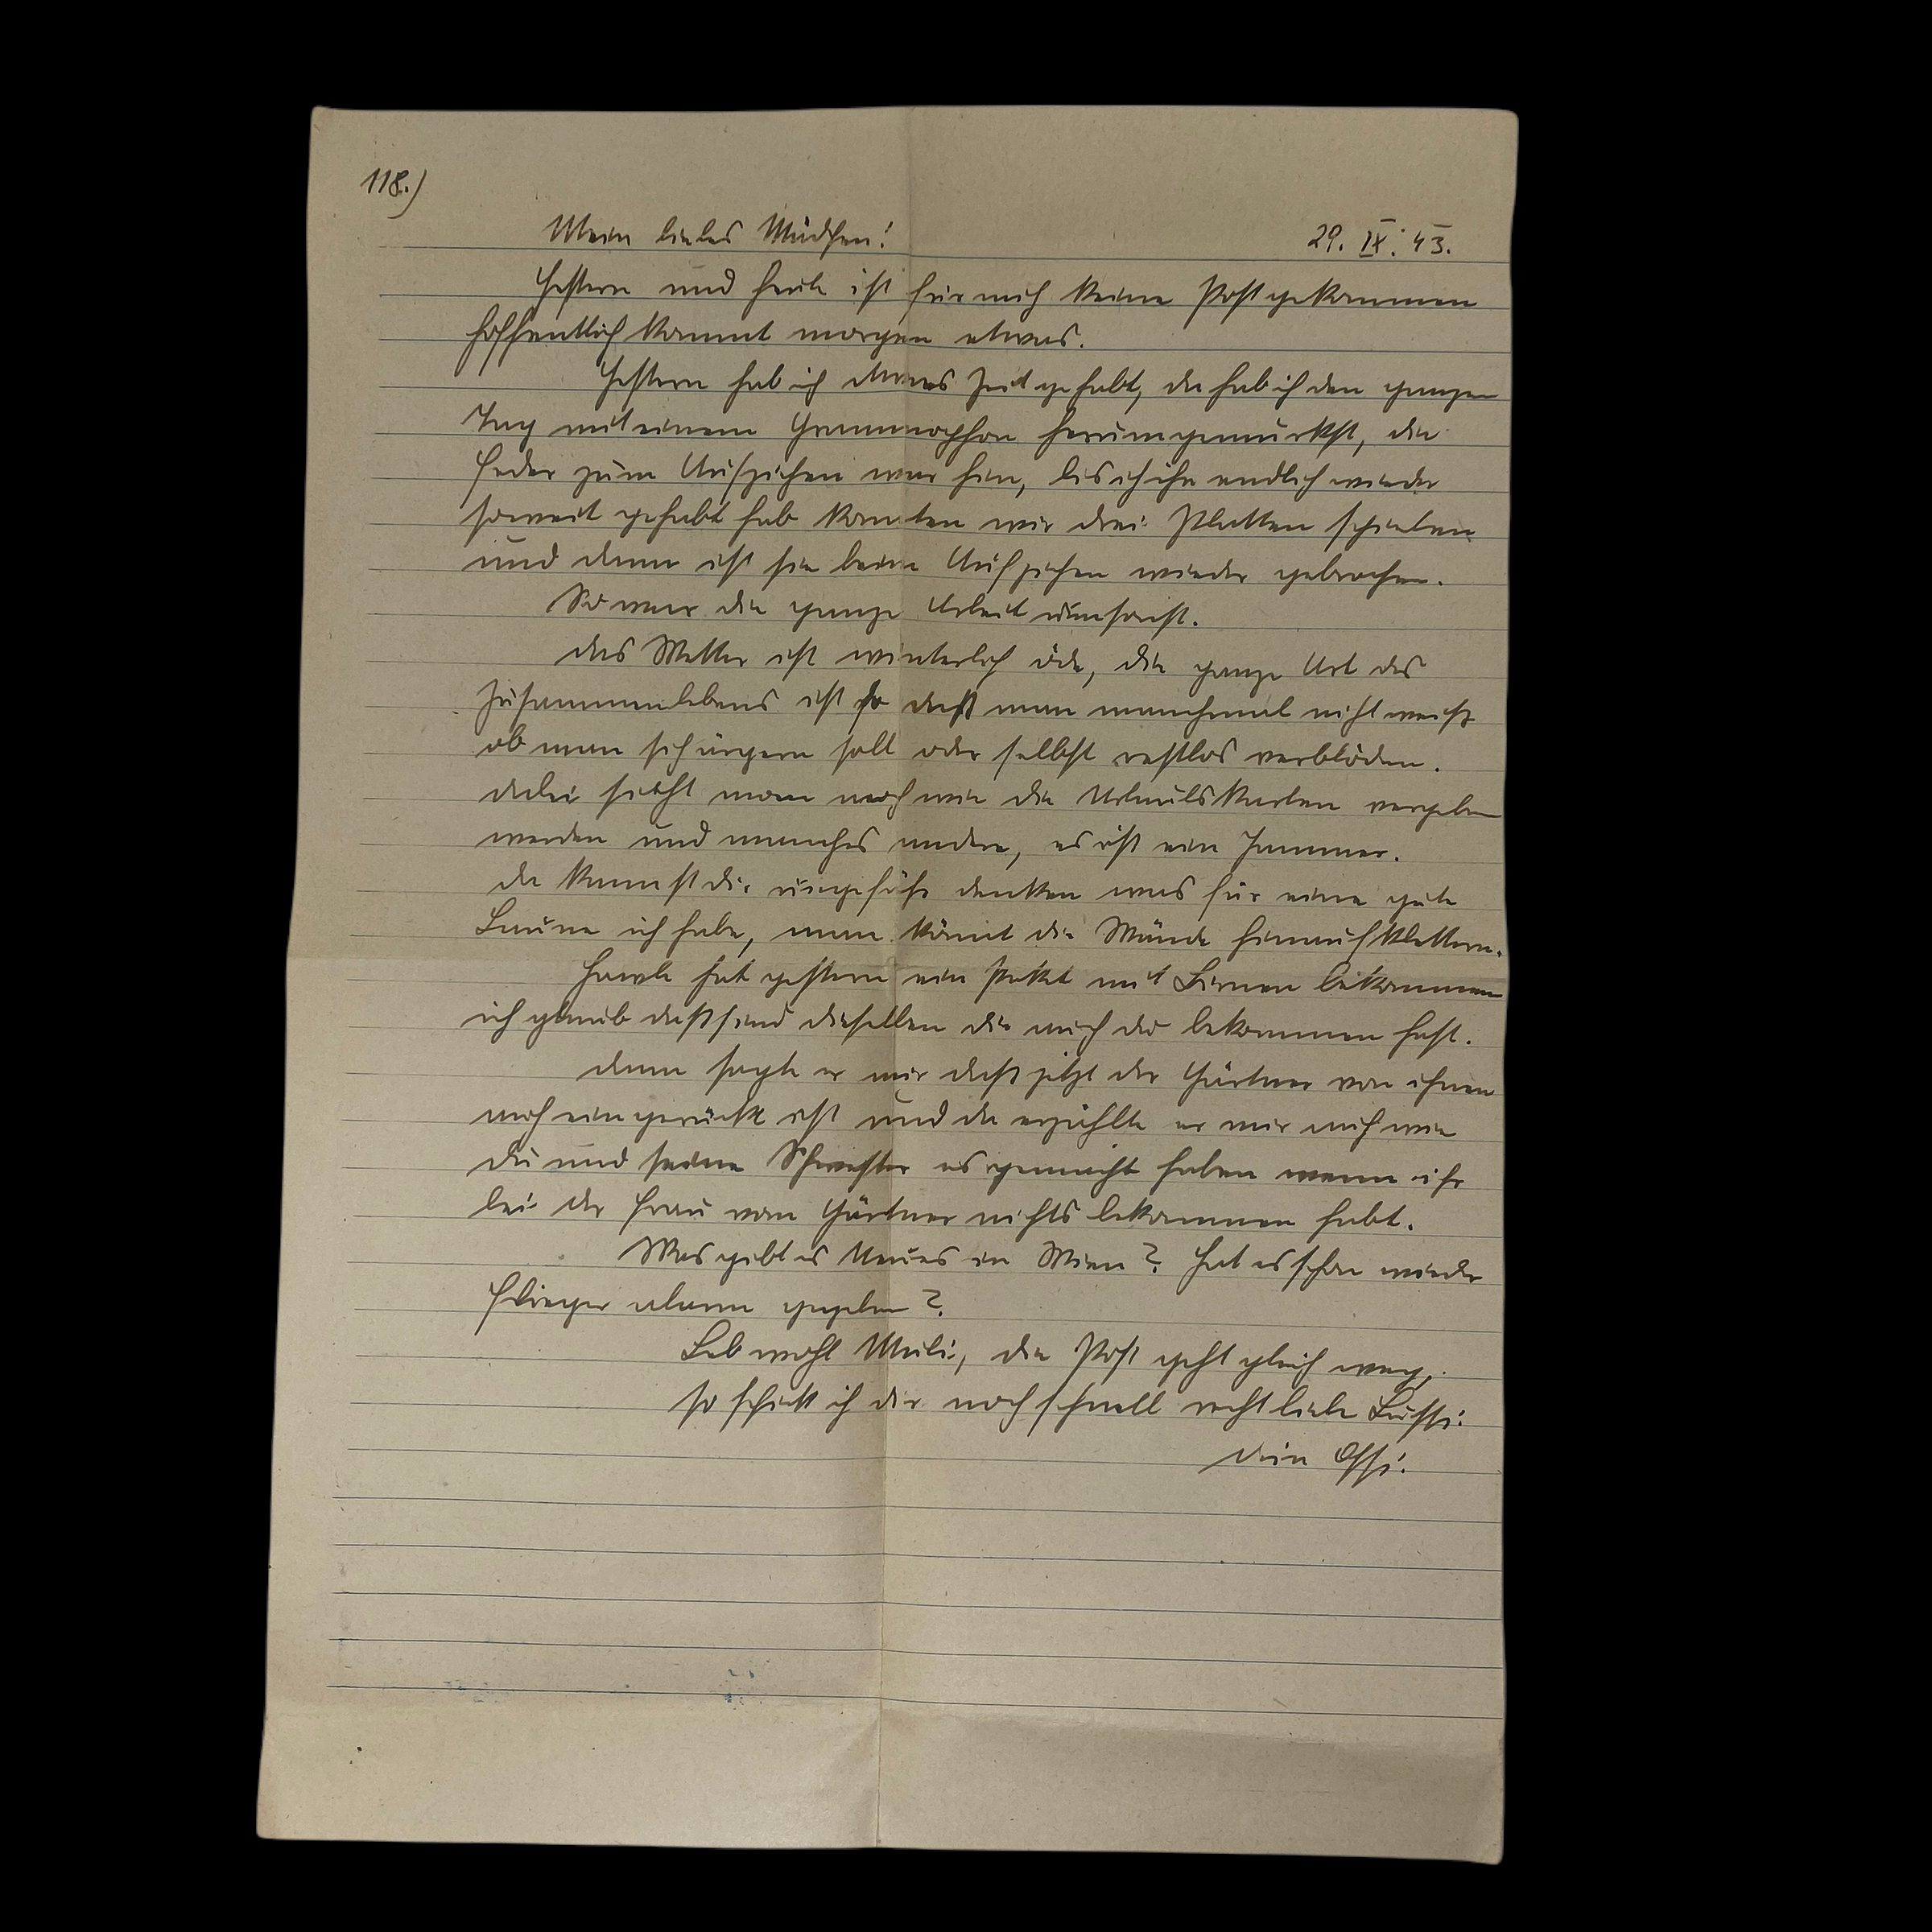 118.)
Mein liebes Mädchen! 29. IX. 43.
Gestern und heute ist für mich keine Post gekommen
hoffentlich kommt morgen etwas.
Gestern hab ich etwas Zeit gehabt, da hab ich den ganzen
Tag mit einem Grammophon herumgemurkst, die
Feder zum Aufziehen war hin, bis ich ihn endlich wieder
soweit gehabt hab konnten wir drei Platten spielen
und dann ist sie beim Aufziehen wieder gebrochen.
So war die ganze Arbeit umsonst.
Das Wetter ist winterlich öde, die ganze Art des
Zusammenlebens ist so daß man manchmal nicht weiß
ob man sich ärgern soll oder selbst restlos verblöden.
Dabei sieht man noch wie die Urlaubskarten vergeben
werden und manches andere, es ist ein Jammer.
Da kannst dir ungefähr denken was für eine gute
Laune ich habe, man könnt die Wände hinaufklettern.
hat gestern ein Paket mit Birnen bekommen
ich glaub daß sind dieselben die auch du bekommen hast.
Dann sagte er mir daß jetzt der Gärtner von ihnen
auch eingerückt ist und da erzählte er mir auch wie
du und seine Schwester es gemacht haben wenn ihr
bei der Frau vom Gärtner nichts bekommen habt.
Was gibt es Neues in Wien? Hat es schon wieder
Flieger alarm gegeben?
Leb wohl die Post geht gleich weg,
so schick ich dir noch schnell recht liebe Bussi.
Dein Ossi.